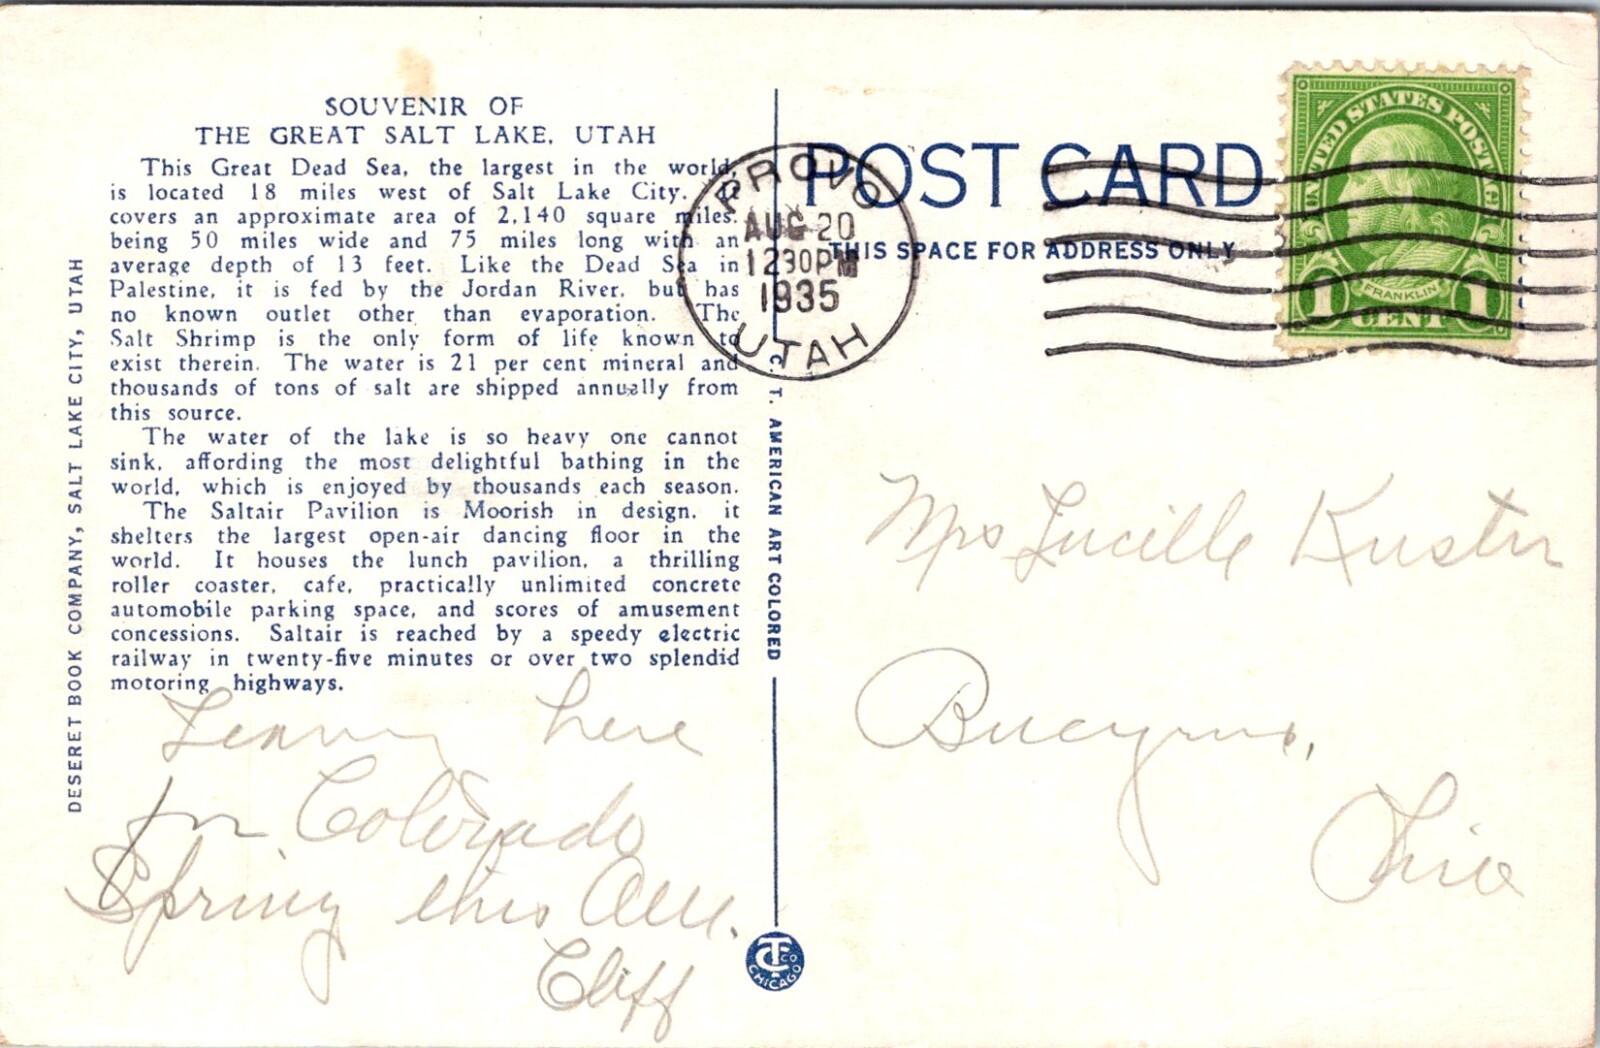 SOUVENIR OF
THE GREAT SALT LAKE, UTAH
This Great Dead Sea, the largest in the world,
is located 18 miles west of Salt Lake City. It
covers an approximate area of 2,140 square miles.
being 50 miles wide and 75 miles long with an
average depth of 13 feet. Like the Dead Sea in
Palestine, it is fed by the Jordan River, but has
no known outlet other than evaporation. The
Salt Shrimp is the only form of life known to
exist therein. The water is 21 per cent mineral and
thousands of tons of salt are shipped annually from
this source.
The water of the lake is so heavy one cannot
sink, affording the most delightful bathing in the
world, which is enjoyed by thousands each season.
The Saltair Pavilion is Moorish in design, it
shelters the largest open-air dancing floor in the
world. It houses the lunch pavilion, a thrilling
roller coaster, cafe, practically unlimited concrete
automobile parking space, and scores of amusement
concessions. Saltair is reached by a speedy electric
railway in twenty-five minutes or over two splendid
motoring highways.
DESERET BOOK COMPANY, SALT LAKE CITY, UTAH
Leaving here
for Colorado
Spring this
Cliff
C. T. AMERICAN ART COLORED
CT CO
CHICAGO
POST CARD
THIS SPACE FOR ADDRESS ONLY
PROVO
AUG 20
1230PM
1935
UTAH
UNITED STATES POSTAGE
FRANKLIN
1 CENT 1
Mrs Lucille Kuster
Bucyrus,
Ohio